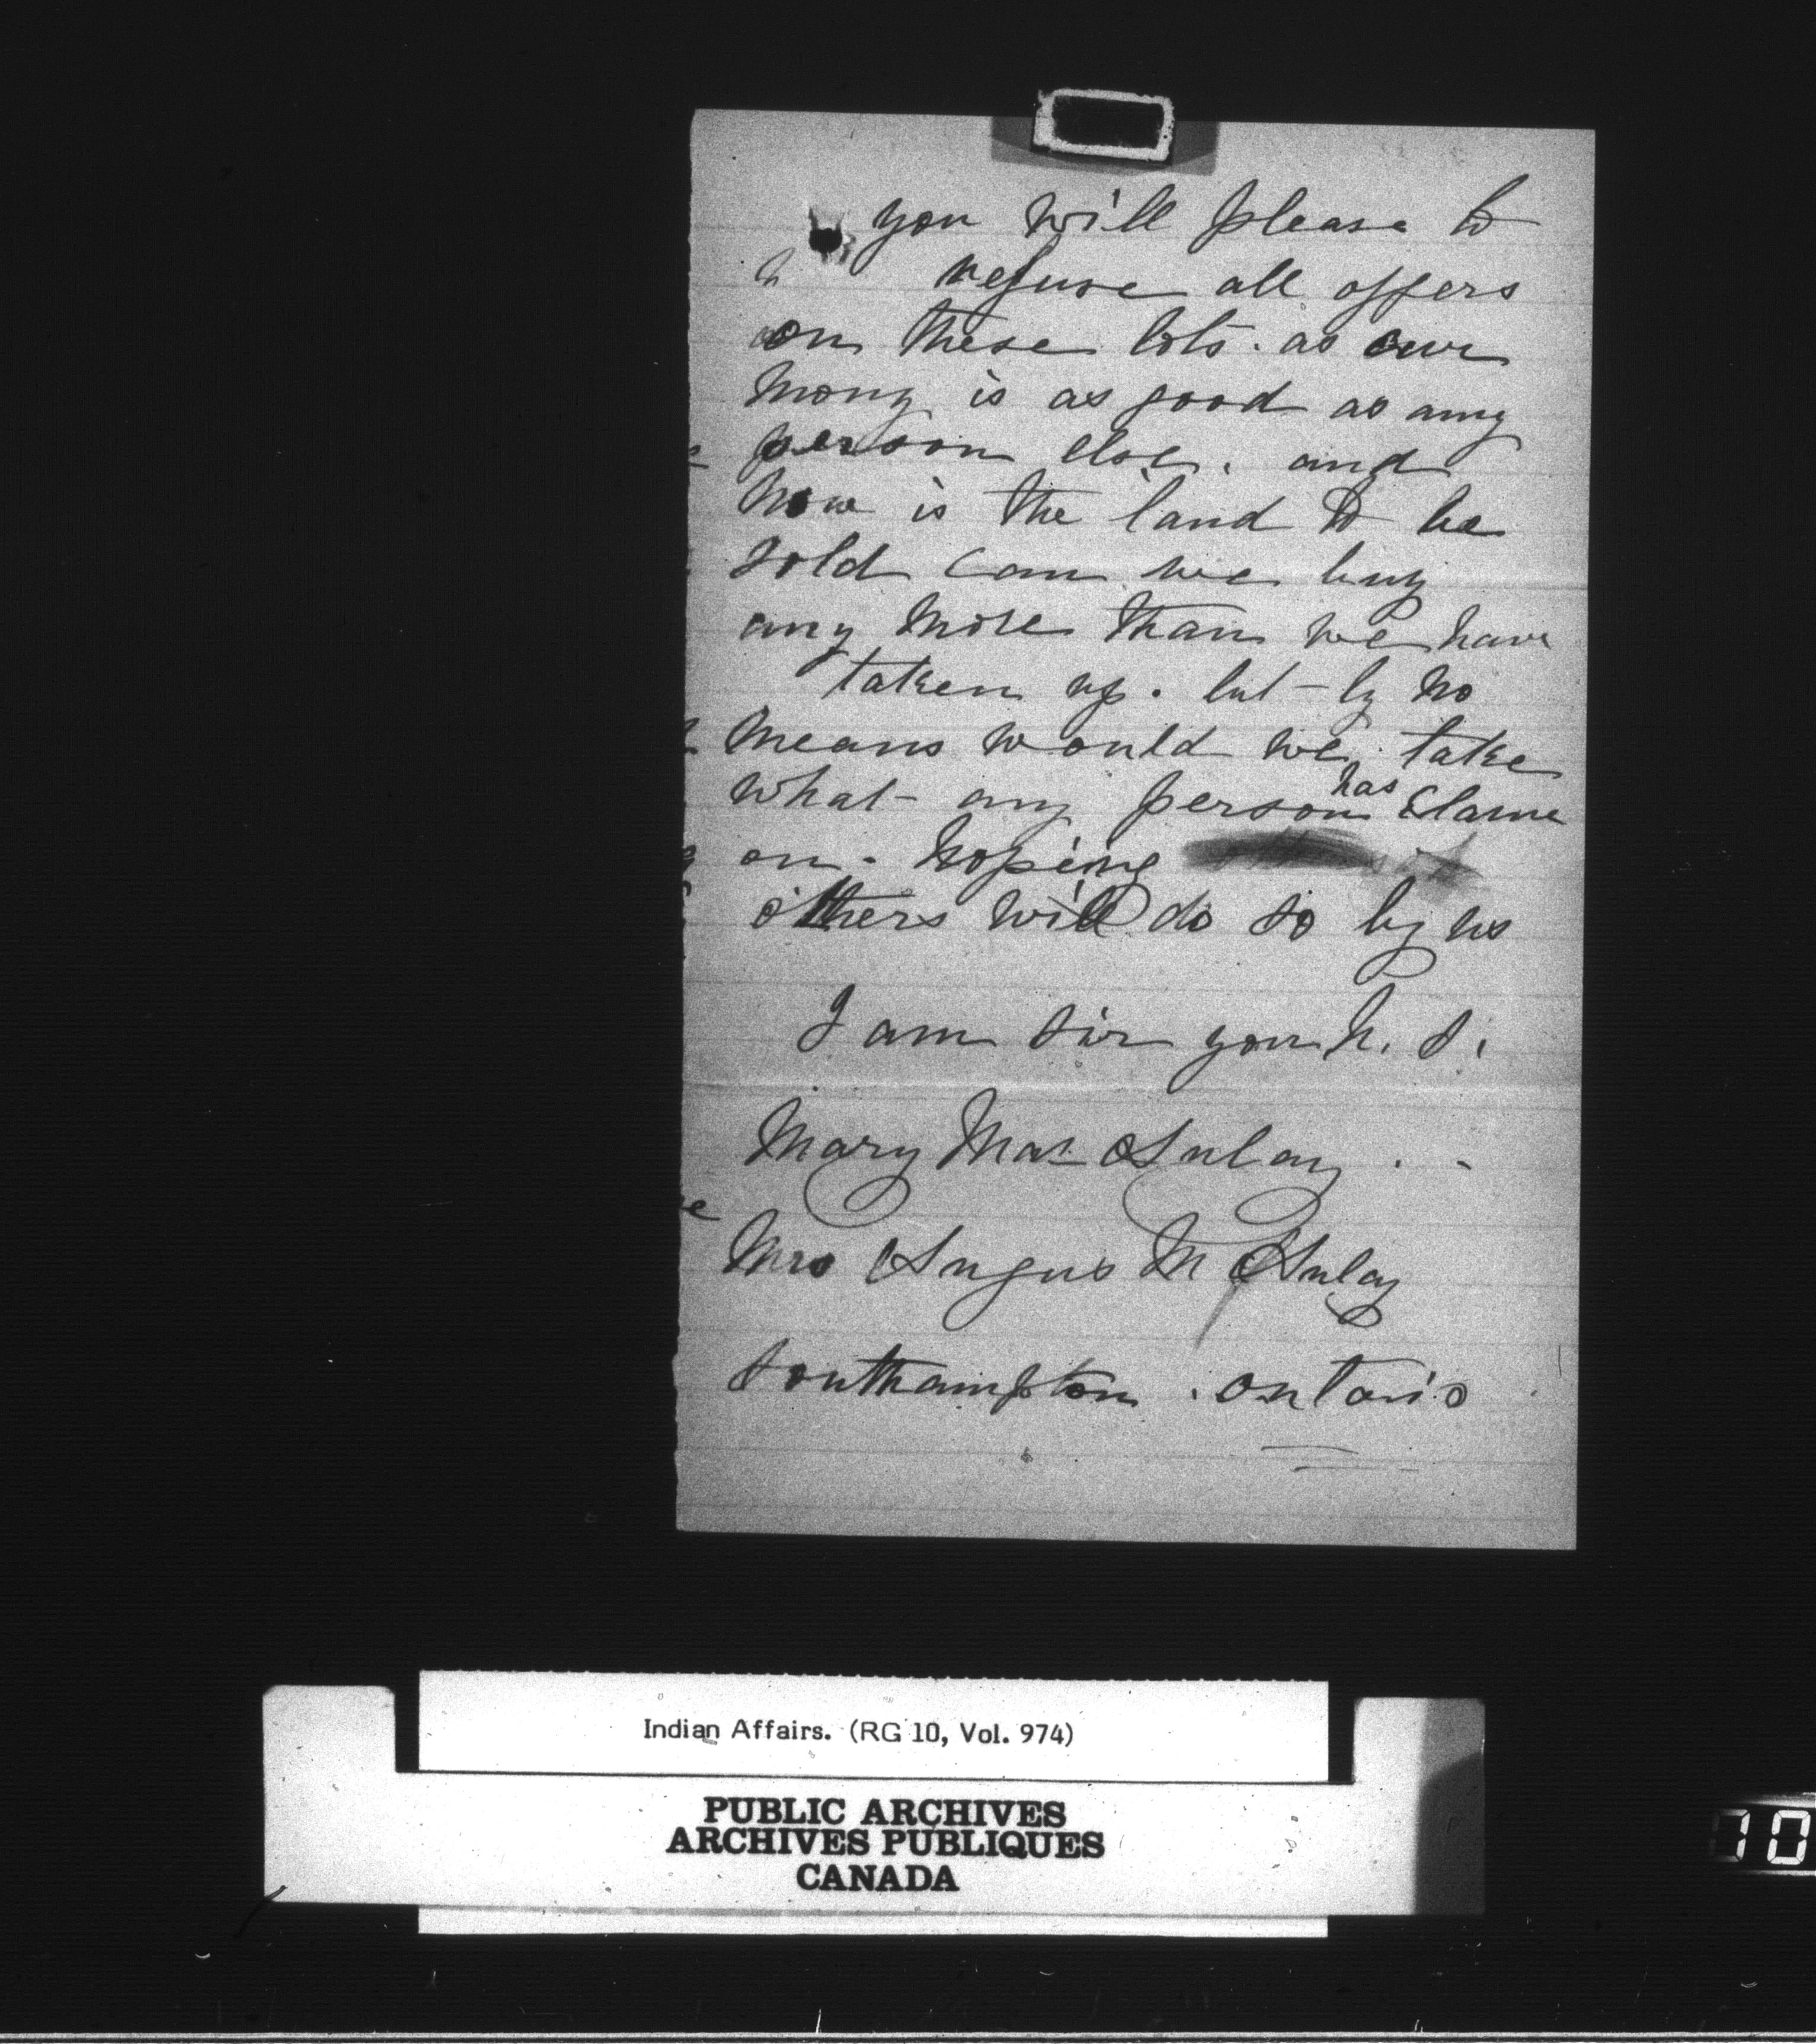 you will please to
refuse all offers
on these lots. as our
mony is as good as any
person else. and
how is the land to be
sold can we buy
any more than we have
taken up. but by no
means would we take
what any person has Clame
on. hoping
others will do so by us
I am sir your h. s.
Mary MacAulay
Mrs Angus McAulay
Southampton. Ontario
Indian Affairs. (RG 10, Vol. 974)
PUBLIC ARCHIVES
ARCHIVES PUBLIQUES
CANADA